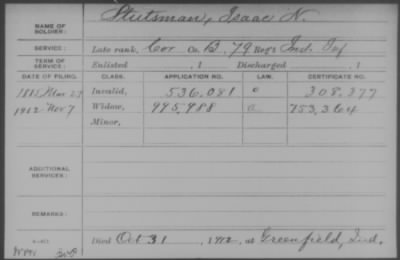 NAME OF SOLDIER: Stutsman, Isaac N.
SERVICE: Late rank, Cor Co. B, 79 Reg't Ind. Inf
TERM OF SERVICE: Enlisted , 1 Discharged , 1
DATE OF FILING. CLASS. APPLICATION NO. LAW. CERTIFICATE NO.
1885 Mar 27 Invalid, 536.081 308.377
1912 Nov 7 Widow, 995.988 a 753.364
Minor,
ADDITIONAL SERVICES:
REMARKS:
Died Oct 31, 1912, at Greenfield, Ind.